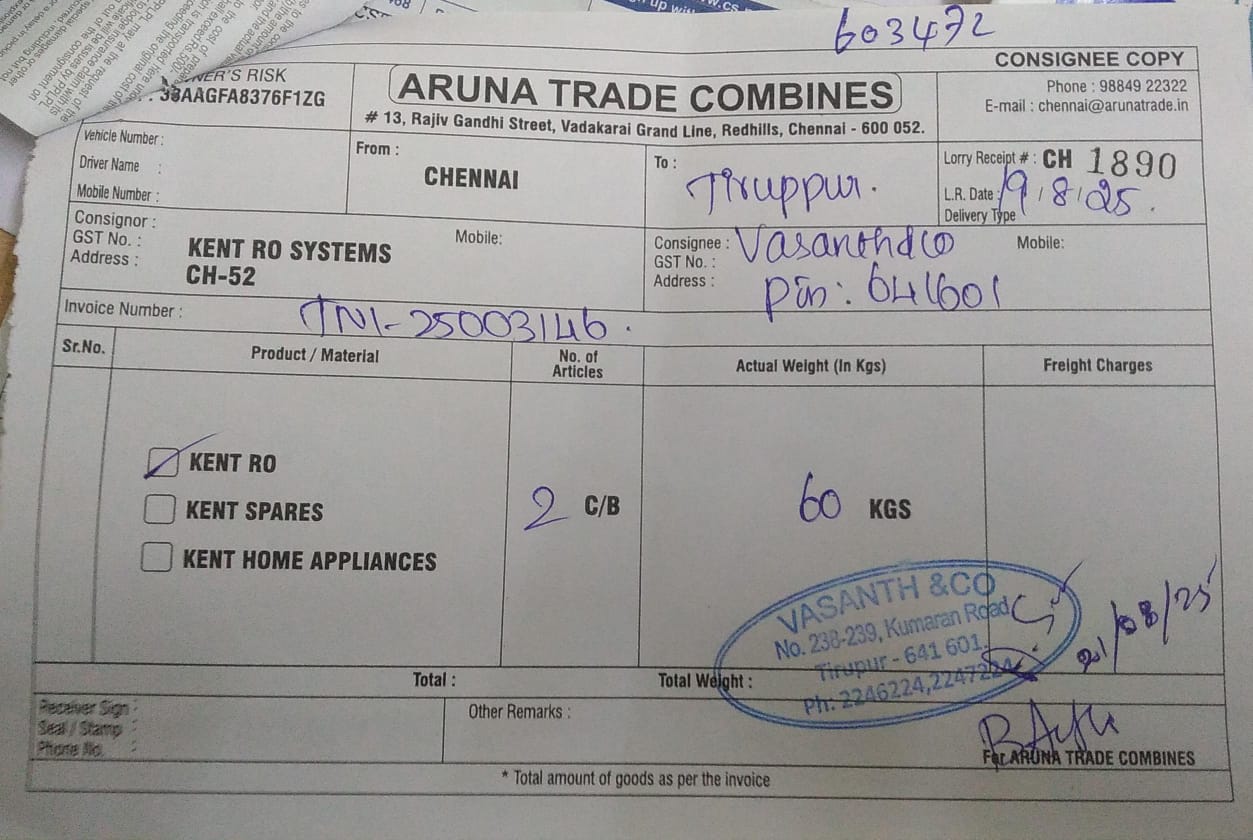 603472
CONSIGNEE COPY
OWNER'S RISK
33AAGFA8376F1ZG
ARUNA TRADE COMBINES
# 13, Rajiv Gandhi Street, Vadakarai Grand Line, Redhills, Chennai - 600 052.
Phone : 98849 22322
E-mail : chennai@arunatrade.in
Vehicle Number :
Driver Name :
Mobile Number :
From :
CHENNAI
To :
Tiruppur.
Lorry Receipt # : CH 1890
L.R. Date : 19/8/25.
Delivery Type
Consignor :
GST No. :
Address :
KENT RO SYSTEMS
CH-52
Mobile:
Consignee : Vasanth&co
GST No. :
Address : Pin: 641601
Mobile:
Invoice Number : TN1-25003146.
Sr.No. Product / Material No. of Articles Actual Weight (In Kgs) Freight Charges
KENT RO
KENT SPARES
KENT HOME APPLIANCES
2 C/B
60 KGS
VASANTH &CO
No. 238-239, Kumaran Road
Tirupur - 641 601.
Ph: 2246224,
21/08/25
Total :
Total Weight :
Receiver Sign :
Seal / Stamp :
Phone No. :
Other Remarks :
For ARUNA TRADE COMBINES
* Total amount of goods as per the invoice